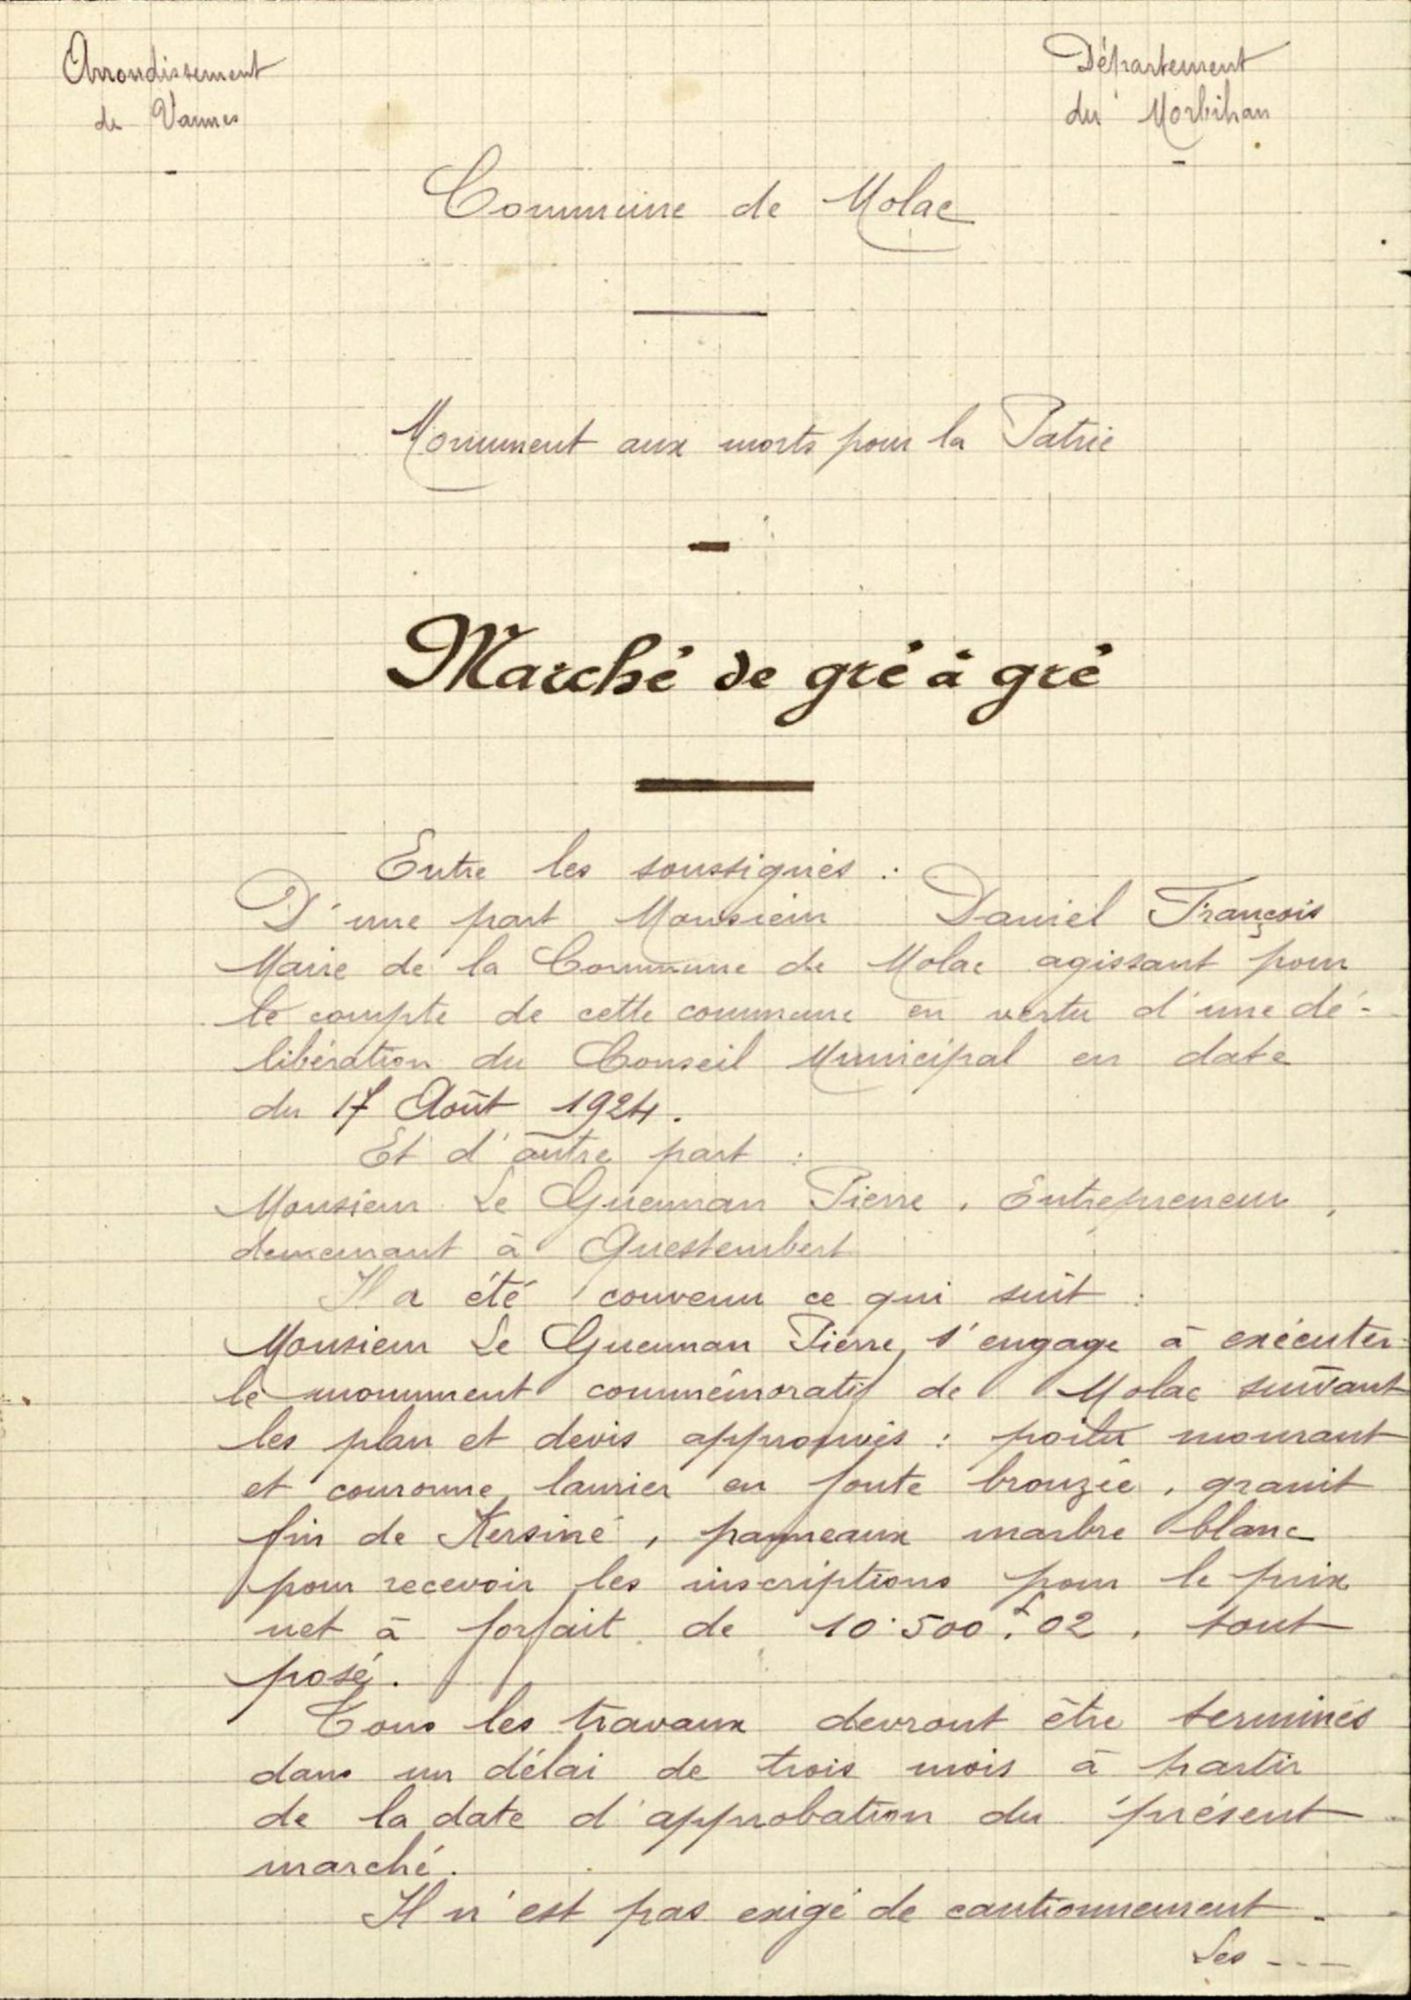 Arrondissement
de Vannes
Département
du Morbihan
Commune de Molac
Monument aux morts pour la Patrie
Marché de gré à gré
Entre les soussignés :
D'une part Monsieur Daniel François
Maire de la Commune de Molac agissant pour
le compte de cette commune en vertu d'une dé-
libération du Conseil Municipal en date
du 17 Août 1924.
Et d'autre part :
Monsieur Le Guennan Pierre, Entrepreneur,
demeurant à Questembert
Il a été convenu ce qui suit :
Monsieur Le Guennan Pierre, s'engage à exécuter
le monument commémoratif de Molac suivant
les plan et devis approuvés : poilu mourant
et couronne laurier en fonte bronzée, granit
fin de Kersiné, panneaux marbre blanc
pour recevoir les inscriptions pour le prix
net à forfait de 10.500f.02, tout
posé.
Tous les travaux devront être terminés
dans un délai de trois mois à partir
de la date d'approbation du présent
marché.
Il n'est pas exigé de cautionnement.
Les ---